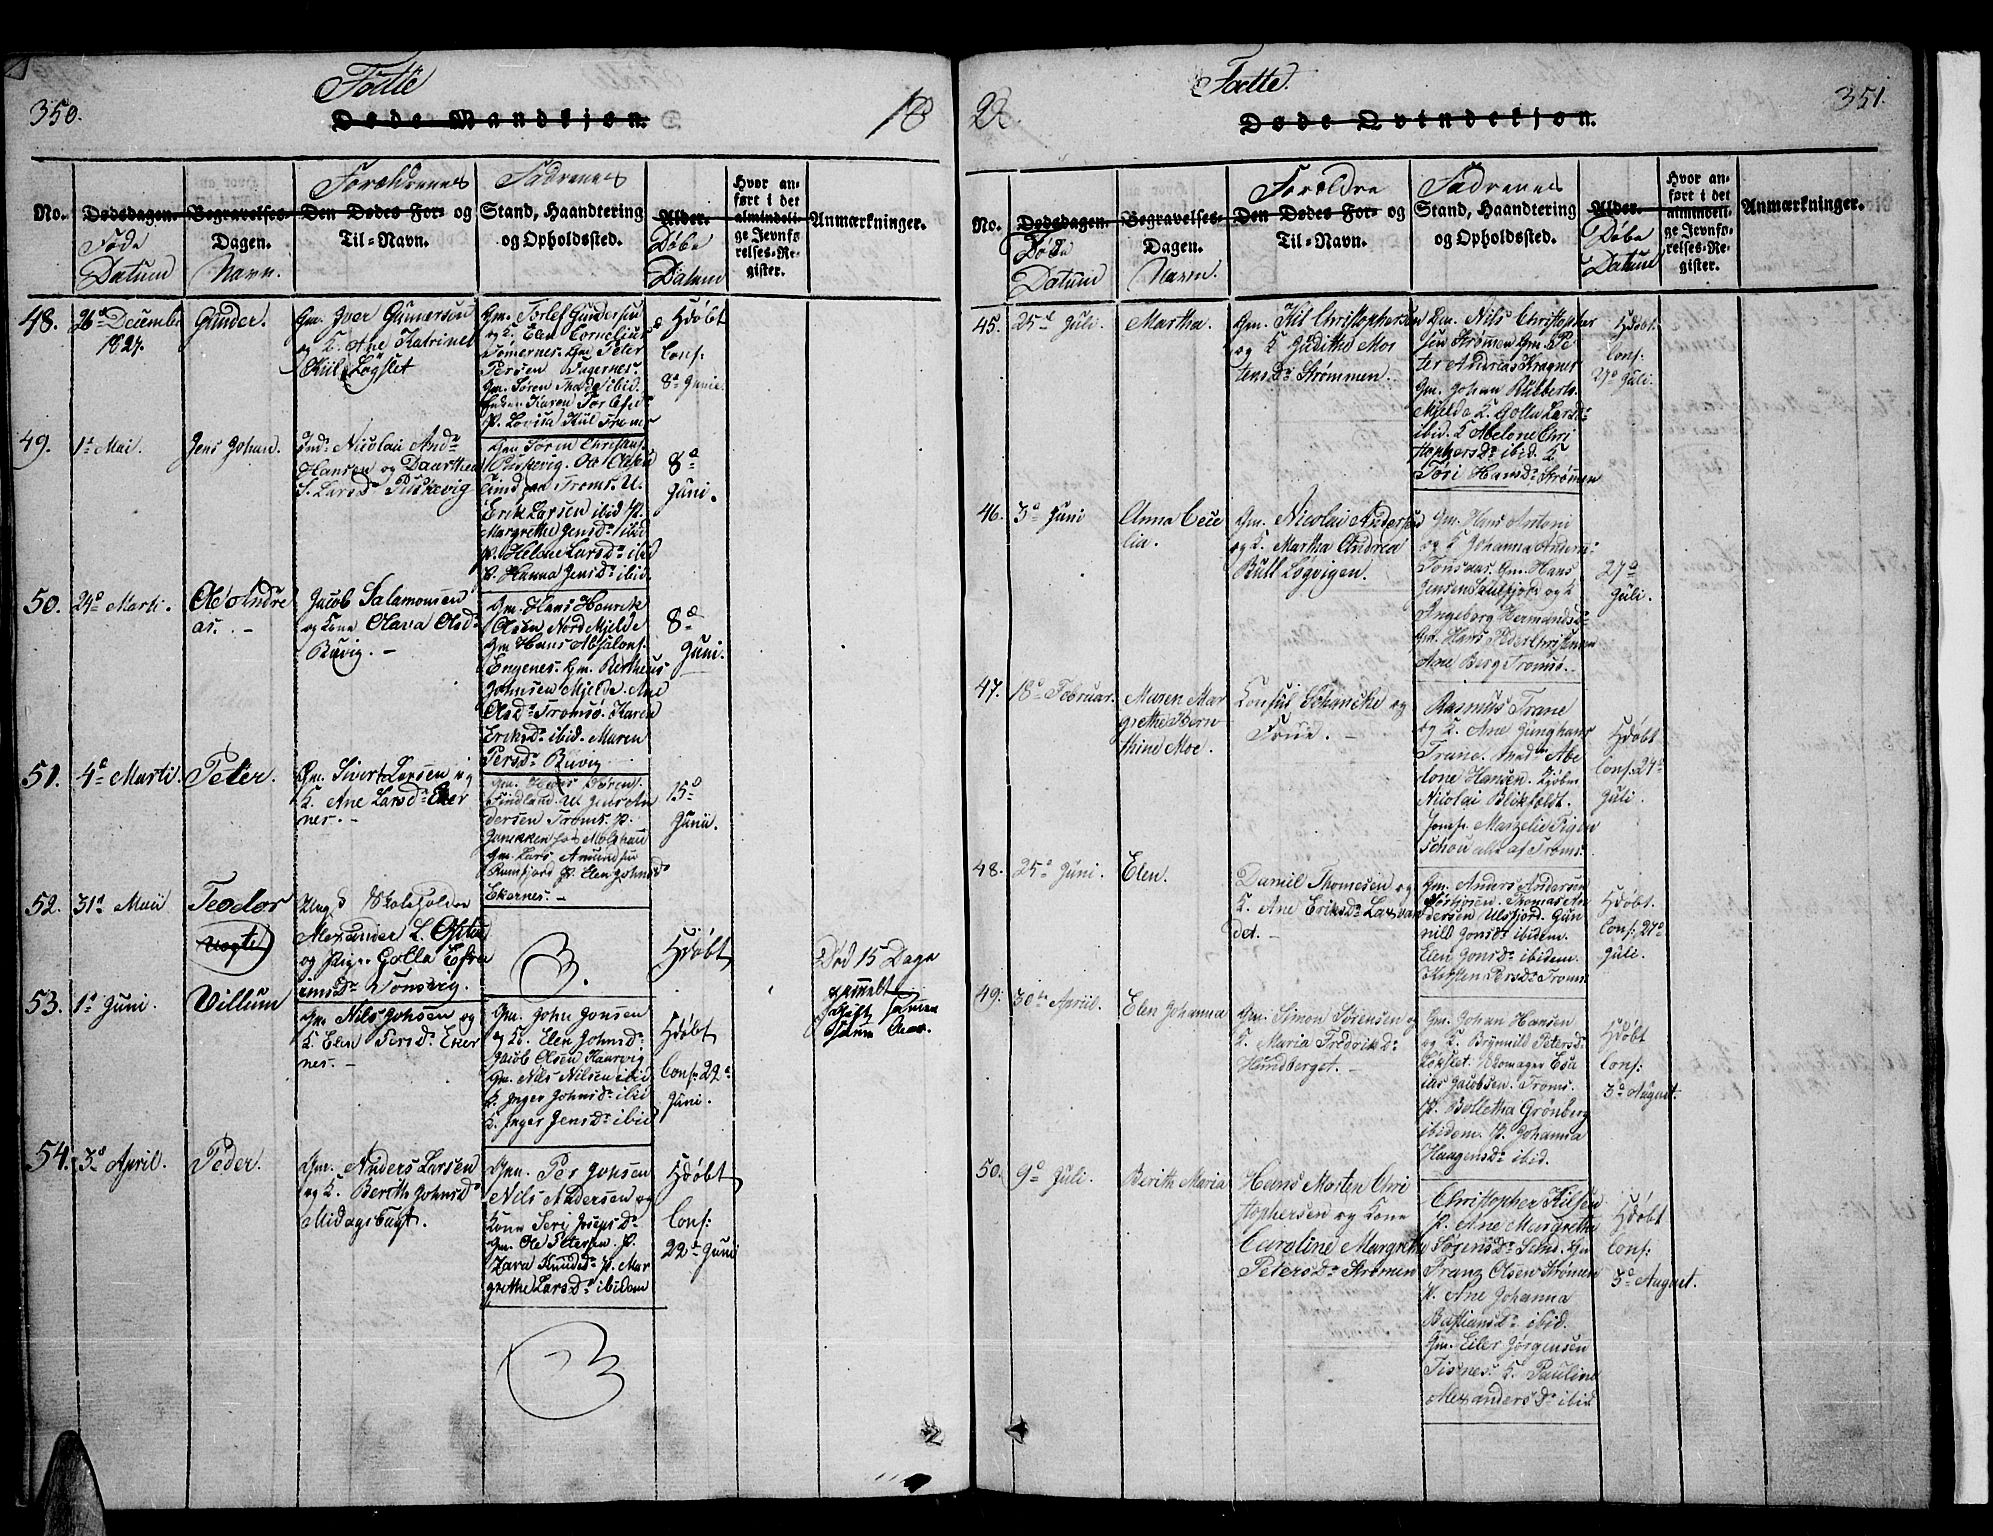 350.
Fødte
18
Døde Mandkjøn.
No.
Dødsdagen.
Føde
Datum
Begravelses-
Dagen.
Navn.
Forældrenes
Den Dødes For- og
Til-Navn.
Fadrenes
Stand, Haandtering
og Opholdssted.
Alder.
Døbe
Datum
Hvor an-
ført i det
almindeli-
ge Jevnfø-
relses-Re-
gister.
Anmærkninger.
48.
26d December
1824.
Gunder.
Gm. Iver Gunnersen
og K. Ane Katrine
Kiil Løgslet
Gm. Torlef Gundersen
og K. Elen Cornelius
Tomernes. Gm Peter
Persen Fagernes.
Gm. Søren ibid.
Karen Torlefsd
P. Lovisa Kiil Troms
Hdøbt
Conf:
8d Junii
49.
1d Mai.
Jens Johan.
Inds. Nicolai Andr.
Hansen og Daarthea
S. Larsdr Piskevig
Gm. Søren Christians.
Piskevig. Ole Olsen
Troms. U.
Erik Larsen ibid P.
Margrethe Jensdr ibid
P. Helene Larsdr ibid
P. Hanna Jensdr ibid.
8d
Juni.
50.
24d Marti.
Ole Andre
as. -
Jacob Salamonsen
og Kone Olava Olsdr
Ruvig. -
Gm. Hans Henrik
Olsen Nord Mjelde
Gm Hans Absalons.
Engenes. Gm. Bertheus
Johnsen Mjelde. Ane
Olsdr Tromsø. Karen
Eriksdr ibid. Maren
Persdr Ruvig
8d
Juni.
51.
4d Marti.
Peter.
Gm. Sivert Larsen og
K. Ane Larsdr Eker
nes. -
Gm. Søren
Findland. U. Jens An
dersen Troms. P.
Janikken hos Molshau
Gm. Lars Amundsen
Ramfjord P. Elen Johnsdr
Ekernes. -
15d
Junii.
52.
31d Maii
Teodor
Vogti
Ung. Skoleholder
Alexander L.
og Pige Golla Efra
imsdr Tonsvig.
Hdøbt
Død 15 Dage
gammelt
53.
1d Juni.
Villum
Gm Nils Johsen og
K. Elen Persdr Eker
nes. -
Gm. John Jonsen
og K. Elen Johnsdr
Jacob Olsen Kaarvig
Gm. Nils Nilsen ibi
K. Inger Johnsdr ibid
K. Inger Jensdr ibid
Hdøbt
Conf: 22d
Juni.
54.
3d April.
Peder.
Gm. Anders Larsen
og K. Berith Johnsdr
Midagsbugt.
Gm. Per Johsen
Nils Andersen og
Kone Seri Josepsdr
Gm. Ole Petersen P.
Zara Knudsdr P. Mar
grethe Larsdr ibidem
Hdøbt
Conf:
22d Juni
Fødte.
351.
Døde Qvindekjøn.
No.
Dødsdagen.
Føde
Datum
Begravelses-
Dagen.
Navn.
Forældre
Den Dødes For- og
Til-Navn.
Fadrenes
Stand, Haandtering
og Opholdssted.
Alder.
Døbe
Datum
Hvor an-
ført i det
almindeli-
ge Jevnfø-
relses-Re-
gister.
Anmærkninger.
45.
25d Juli.
Martha.
Gm. Kil Christophersen
og K. Juditha Mor
tensdr Strømmen.
Gm. Nils Christopher
sen Strømen Gm. Pe
ter Andreas Kragner
Gm. Johan Rubberts.
Mjelde K. Golla Larsdr
ibid. K Abelone Chri
stophersdr ibid. K
Tøri Hansdr Strømen
Hdøbt
Conf:
27d Juli.
46.
3d Juni
Anna Cecie
lia.
Gm. Nicolai Andersen
og K. Martha Andrea
Bull Løgvigen.
Gm. Hans Antoni
og K Johanna Anders.
Tonsaas. Gm. Hans
Jensen og K
Ingeborg Hermandsdr
Gm. Hans Peder Christensen
Ane Berg Tromsø. -
27d
Juli.
47.
18d Februar.
Maren Mar
grethe Bern
thine Moe.
Consul Schancke og
Frue. -
Rasmus Trane
og K. Ane Junghans
Trane. Andr. Abe
lone Hansen. Kjøbm
Nicolai Blikfeldt.
Jomf. Marzelie Figen
schou alle af Troms.
Hdøbt
Conf: 24d
Juli.
48.
25d Juni.
Elen.
Daniel Thomesen og
K. Ane Eriksdr Laxvan
det. -
Gm. Anders Andersen
Thomas An
dersen Ulsfjord. Gun
nild Jonsdr ibidem.
Elen Jonsdr ibidem.
Kirsten Persdr Troms.
Hdøbt.
Conf: 27d
Juli.
49.
30d Apriil.
Elen Johanna
Gm. Simon Sørensen og
K. Maria Fredriksdr
Hundberget. -
Gm. Johan Hansen
og K. Brynnild Petersdr
Løkslet. Skomager Esa
ias Jacobsen. Troms.
P. Bolletha Grønberg
ibidem. P. Johanna
Haagensdr ibid.
Hdøbt
Conf:
3d August.
50.
9d Juli.
Berith Maria
Hans Morten Chri
stophersen og Kone
Caroline Margrethe
Petersdr Strømen
Christopher Kilsen
P. Ane Margretha
Sørensdr Send. Gm
Franz Olsen Strømen
P. Ane Johanna
Bastiansdr ibid.
Gm. Eiler Jørgensen
Tisnes. K. Pauline
Alexandersdr ibid
Hdøbt
Conf:
3d August.